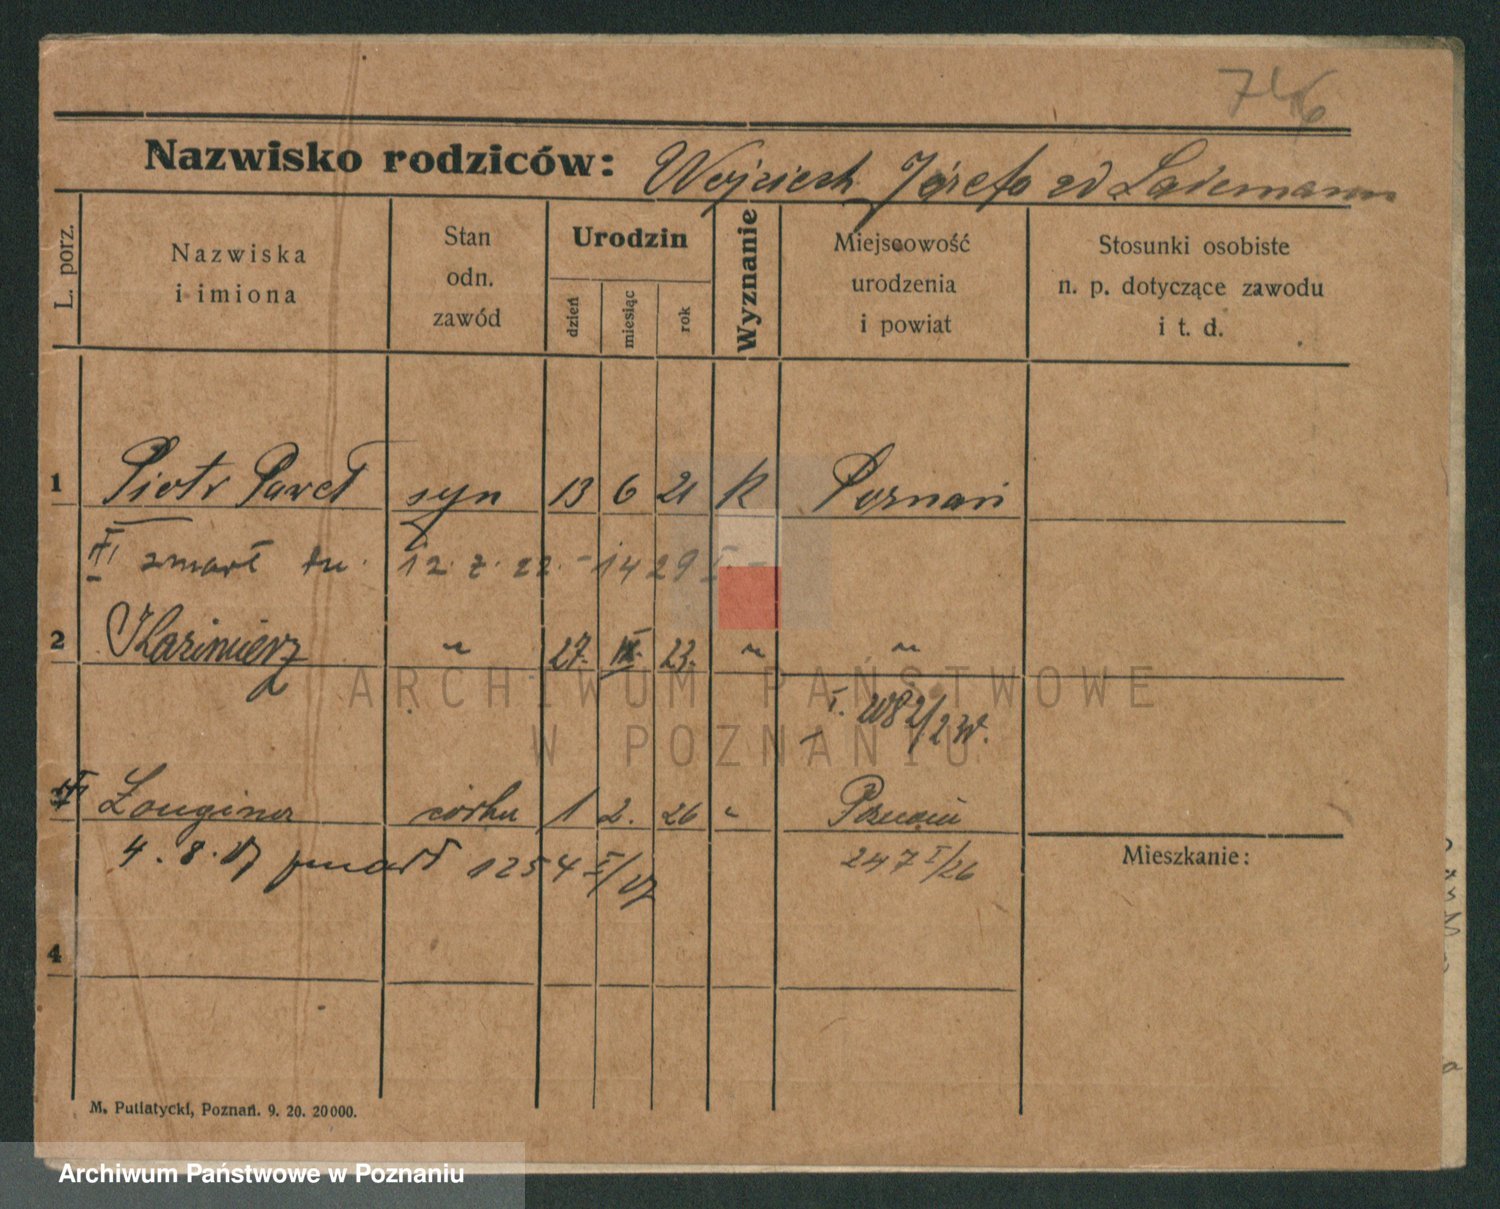 746
Nazwisko rodziców: Wojciech Józefa zd Lademann
L. porz.
Nazwiska i imiona
Stan odn. zawód
Urodzin
dzień
miesiąc
rok
Wyznanie
Miejscowość urodzenia i powiat
Stosunki osobiste n. p. dotyczące zawodu i t. d.
1 Piotr Paweł syn 13 6 21 K Poznań
zmarł 12. 2. 22. - 1429
2 Kazimierz " 27. IX. 23. " "
I. 2w.
Longina córka 1 2. 26 " Poznań
4. 8. zmarł 1254 I/
247 I/26
Mieszkanie:
4
M. Putiatycki, Poznań. 9. 20. 20000.
ARCHIWUM PAŃSTWOWE
W POZNANIU
Archiwum Państwowe w Poznaniu